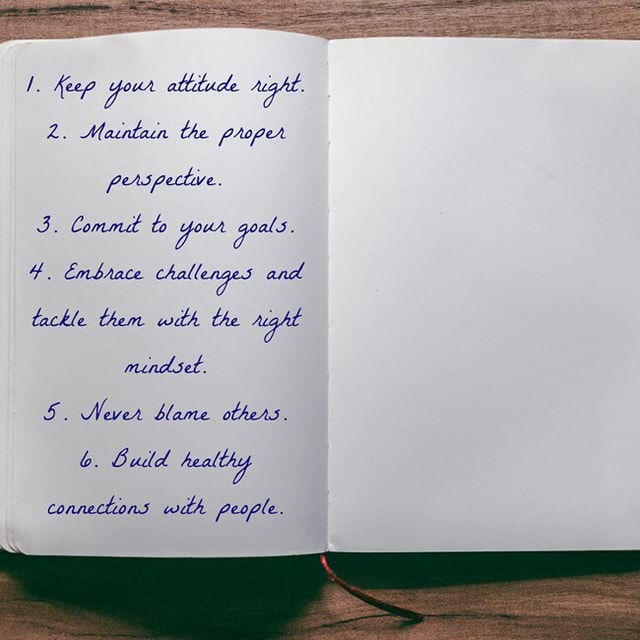 1. Keep your attitude right.
2. Maintain the proper
perspective.
3. Commit to your goals.
4. Embrace challenges and
tackle them with the right
mindset.
5. Never blame others.
6. Build healthy
connections with people.